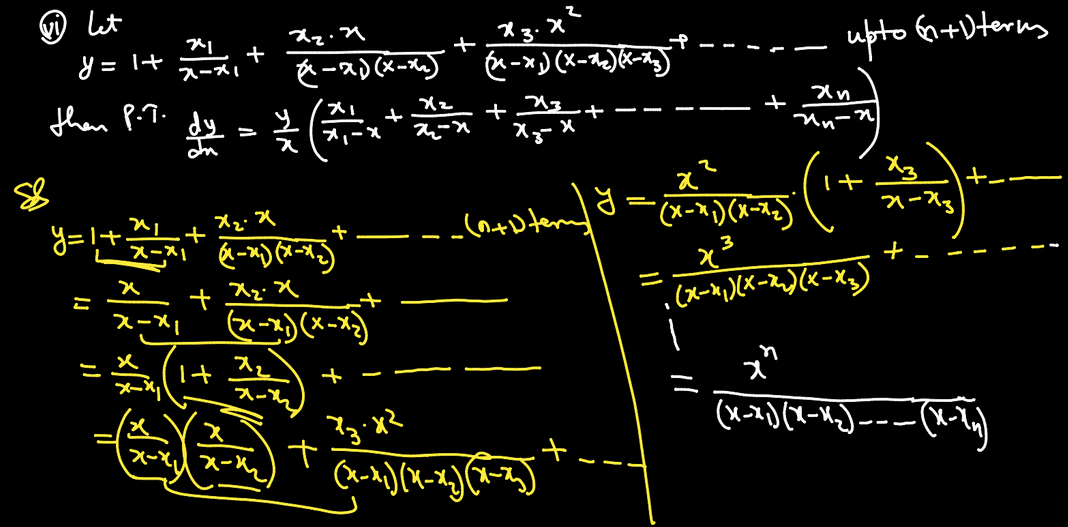 (vi) Let
y = 1 + x₁/(x−x₁) + x₂·x/((x−x₁)(x−x₂)) + x₃·x²/((x−x₁)(x−x₂)(x−x₃)) + ------ upto (n+1) terms
then P.T. dy/dx = y/x (x₁/(x₁−x) + x₂/(x₂−x) + x₃/(x₃−x) + ------ + xₙ/(xₙ−x))
Sol
y = 1 + x₁/(x−x₁) + x₂·x/((x−x₁)(x−x₂)) + ------ (n+1) terms
= x/(x−x₁) + x₂·x/((x−x₁)(x−x₂)) + ------
= x/(x−x₁) (1 + x₂/(x−x₂)) + ------
= (x/(x−x₁)) (x/(x−x₂)) + x₃·x²/((x−x₁)(x−x₂)(x−x₃)) + ----
y = x²/((x−x₁)(x−x₂)) · (1 + x₃/(x−x₃)) + ----
= x³/((x−x₁)(x−x₂)(x−x₃)) + ------
= xⁿ/((x−x₁)(x−x₂)----(x−xₙ))